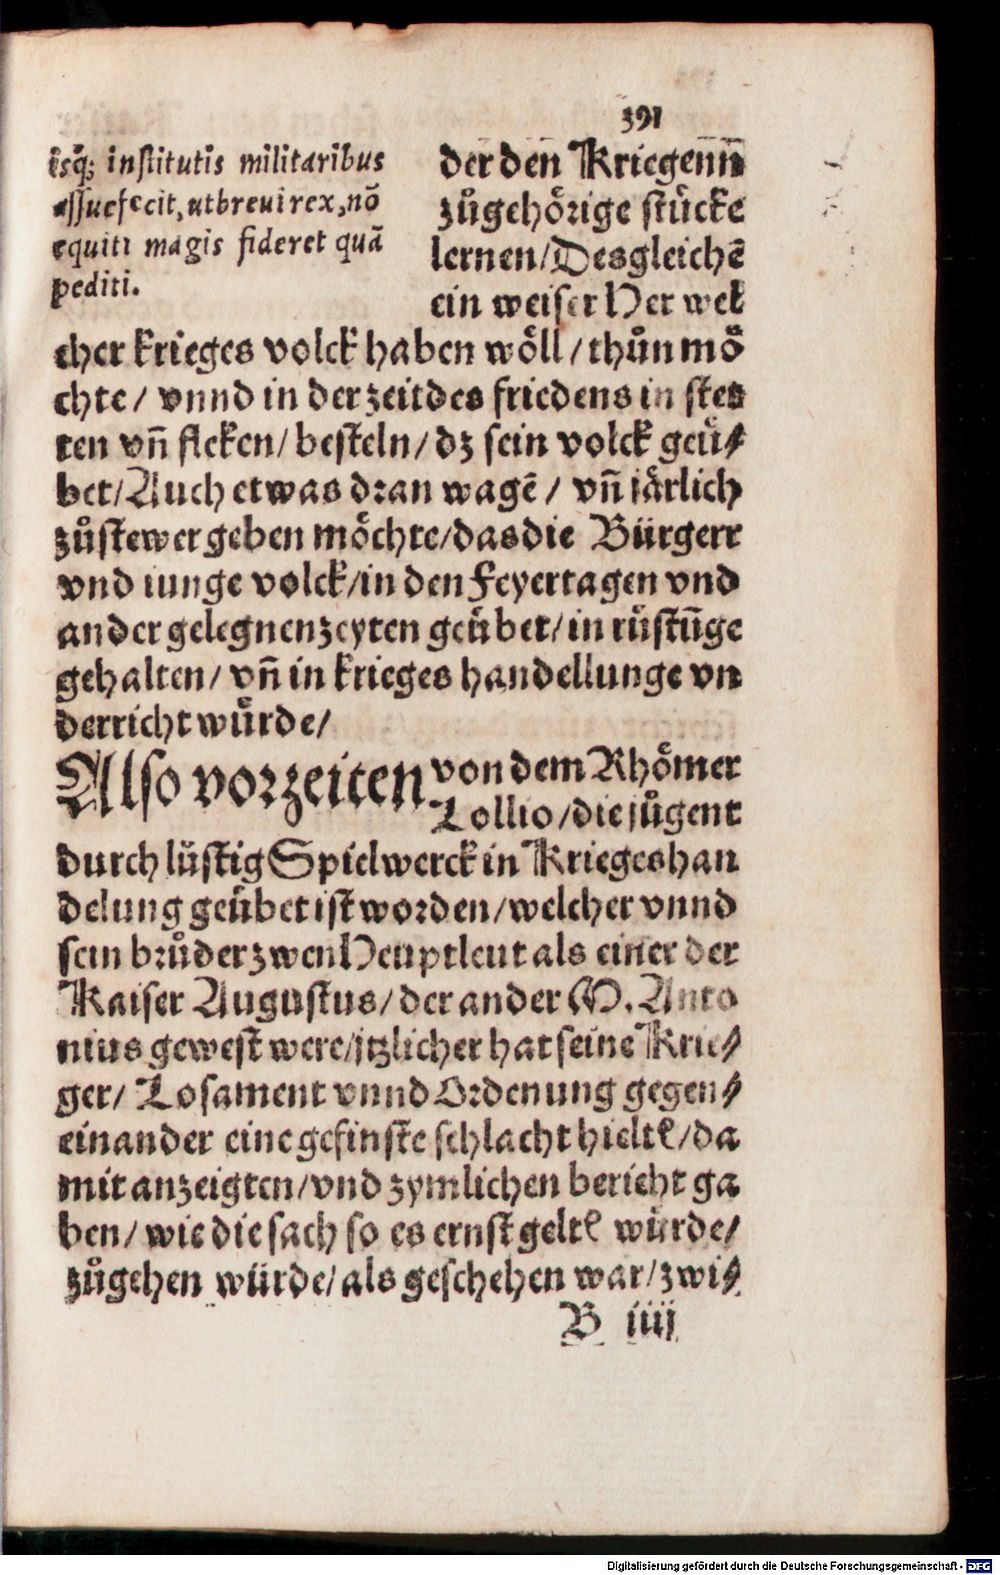 391
isq̃; institutis militaribus
assuefecit, ut brevi rex, nō
equiti magis fideret quā
pediti.
der den Kriegenn̄
zůgehörige stücke
lernen/Desgleichē
ein weiser Her wel
cher krieges volck haben wöll/thůn mö
chte/ vnnd in der zeit des friedens in stes
ten vn̄ flcken/besteln/dz sein volck geü⸗
bet/Auch etwas dran wagē/ vn̄ järlich
zůstewer geben möchte/das die Bürgerr
vnd iunge volck/in den Feyertagen vnd
ander gelegnen zeyten geübet/in rüstūge
gehalten/ vn̄ in krieges handellunge vn
derricht würde/
Also vorzeiten von dem Rhömer
Tollio/die jůgent
durch lüstig Spielwerck in Krieges han
delung geübet ist worden/welcher vnnd
sein brůder zwen Heuptleut als einer der
Kaiser Augustus/der ander M. Anto
nius gewest were/jtzlicher hat seine Krie⸗
ger/ Losament vnnd Ordenung gegen⸗
einander eine gefinste schlacht hieltē/da
mit anzeigten/vnd zymlichen bericht ga
ben/ wie die sach so es ernst geltē würde/
zůgehen würde/als geschehen war/zwi⸗
B iiij
Digitalisierung gefördert durch die Deutsche Forschungsgemeinschaft - DFG